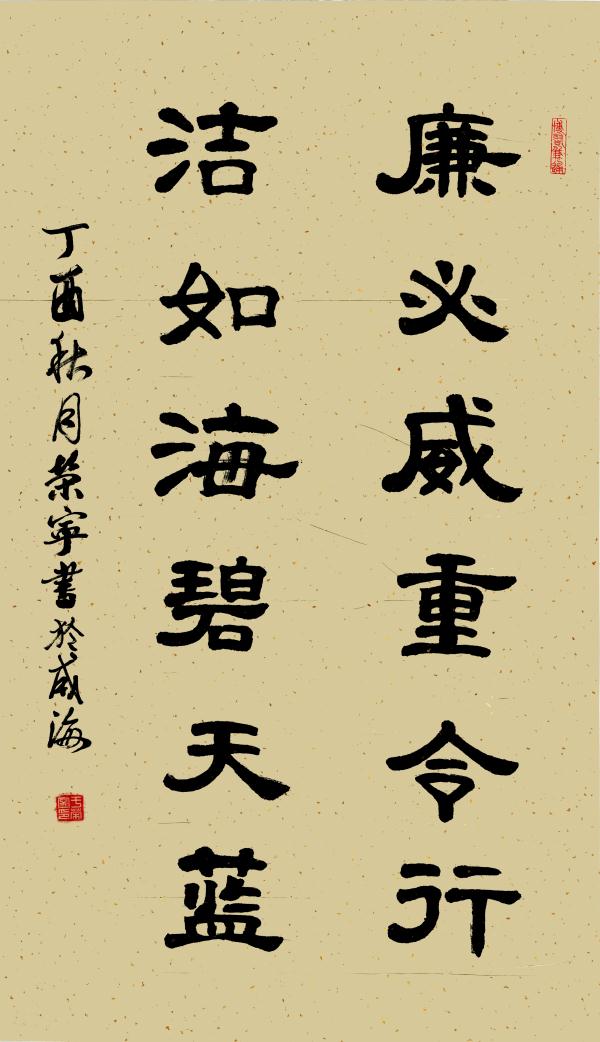 廉必威重令行
洁如海碧天蓝
丁酉秋月荣宁書於威海